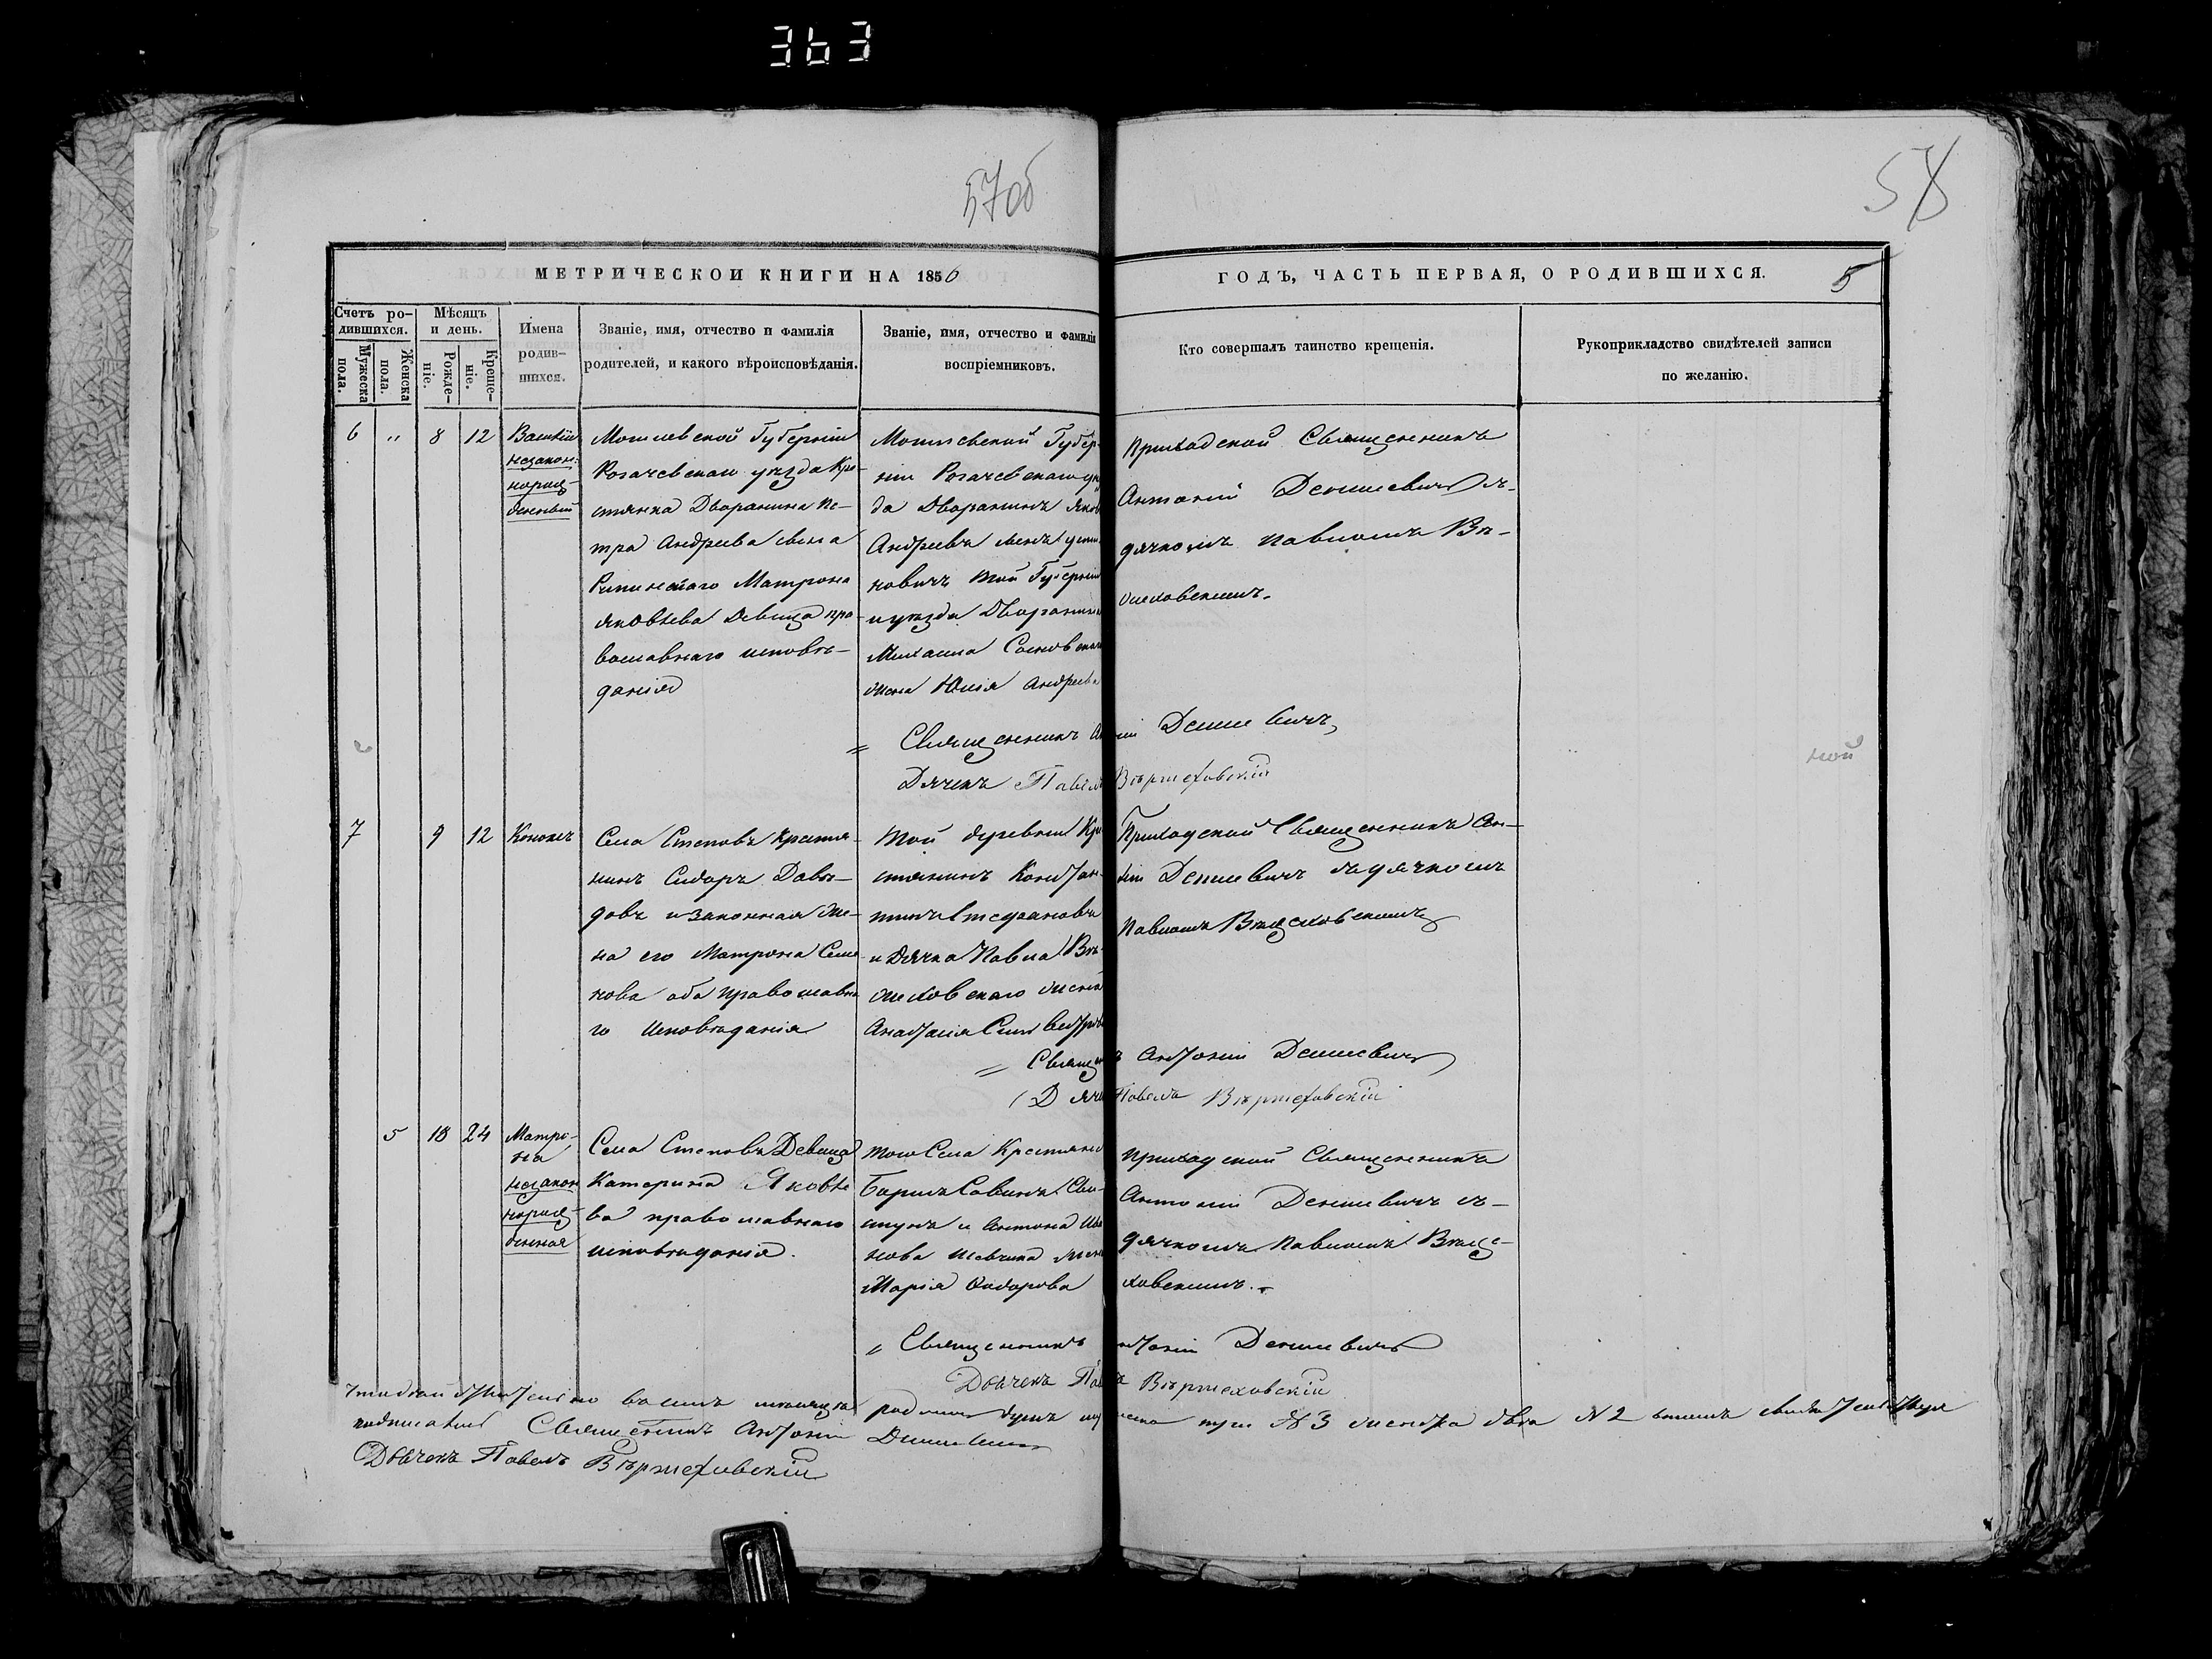 363
57об
58
МЕТРИЧЕСКОИ КНИГИ НА 1856
ГОДЪ, ЧАСТЬ ПЕРВАЯ, О РОДИВШИХСЯ.
5
Счетъ ро-
дившихся.
Мужеска
пола.
Женска
пола.
Мѣсяцъ
и день.
Рожде-
ніе.
Креще-
ніе.
Имена
родив-
шихся.
Званіе, имя, отчество и фамилія
родителей, и какого вѣроисповѣданія.
Званіе, имя, отчество и фамилія
воспріемниковъ.
Кто совершалъ таинство крещенія.
Рукоприкладство свидѣтелей записи
по желанію.
6 " 8 12
незакон-
норож-
денный
Могилевской Губерніи
Рогачевскаго уезда Кре-
стянка Дворанина Пе-
тра Андреева сына
Матрона
Яковлева Девица пра-
вославнаго исповѣ-
данія
Могилевской Губер-
ніи Рогачевскаго уѣ
да Дворанинъ Яков
Андреевъ сынъ
новичъ той Губерніи
и уѣзда Дворанина
Михаила
жена Юлія Андреева
Приходской Священникъ
Антоній Денисевичъ съ
дячкомъ Павломъ Вѣ-
жховскимъ.
= Священникъ Антоній Денисевичъ
Дячекъ Павелъ Вѣржеховскій
ной
7 9 12 Кононъ
Села Степовъ Крестя-
нинъ Сидоръ Давы-
довъ и законная же-
на его Матрона Семе-
нова оба православна
го исповѣданія
той деревни Кре
стянинъ Констан-
тинъ Стефановъ
и Дячка Павла Вѣ-
жховскаго жена
Анастасія Сильвестрова
Приходской Священникъ Ан-
тоній Денисевичъ съ дячкомъ
Павломъ
= Священ Антоній Денисевичъ
Дяче Павелъ Вѣржеховскій
5 18 24 Матро-
на
незакон
норож-
денная
Села Степовъ Девица
Катерина Яковле
ва православнаго
исповѣданія.
того Села Крестянинъ
Борисъ Савинъ
и Антона Ива
нова жена
Марія Сидорова
Приходской Священникъ
Антоній Денисевичъ съ
дячкомъ Павломъ
ховскимъ.
" Священникъ Антоній Денисевичъ
Дьячекъ Павелъ Вѣржеховскій
душъ № 3 № 2
Священникъ Антоній Денисевичъ
Дьячекъ Павелъ Вѣржеховскій